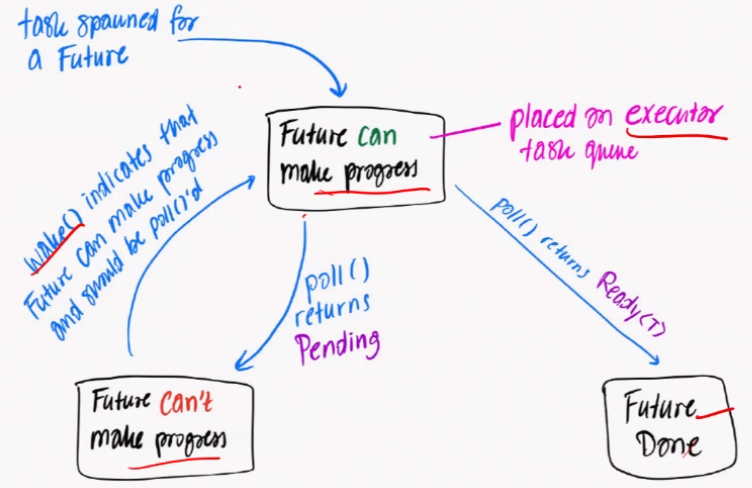 task spawned for
a Future
Future can
make progress
placed on executor
task queue
Wake() indicates that
Future can make progress
and should be poll()'d
poll()
returns
Pending
poll() returns Ready(T)
Future can't
make progress
Future
Done